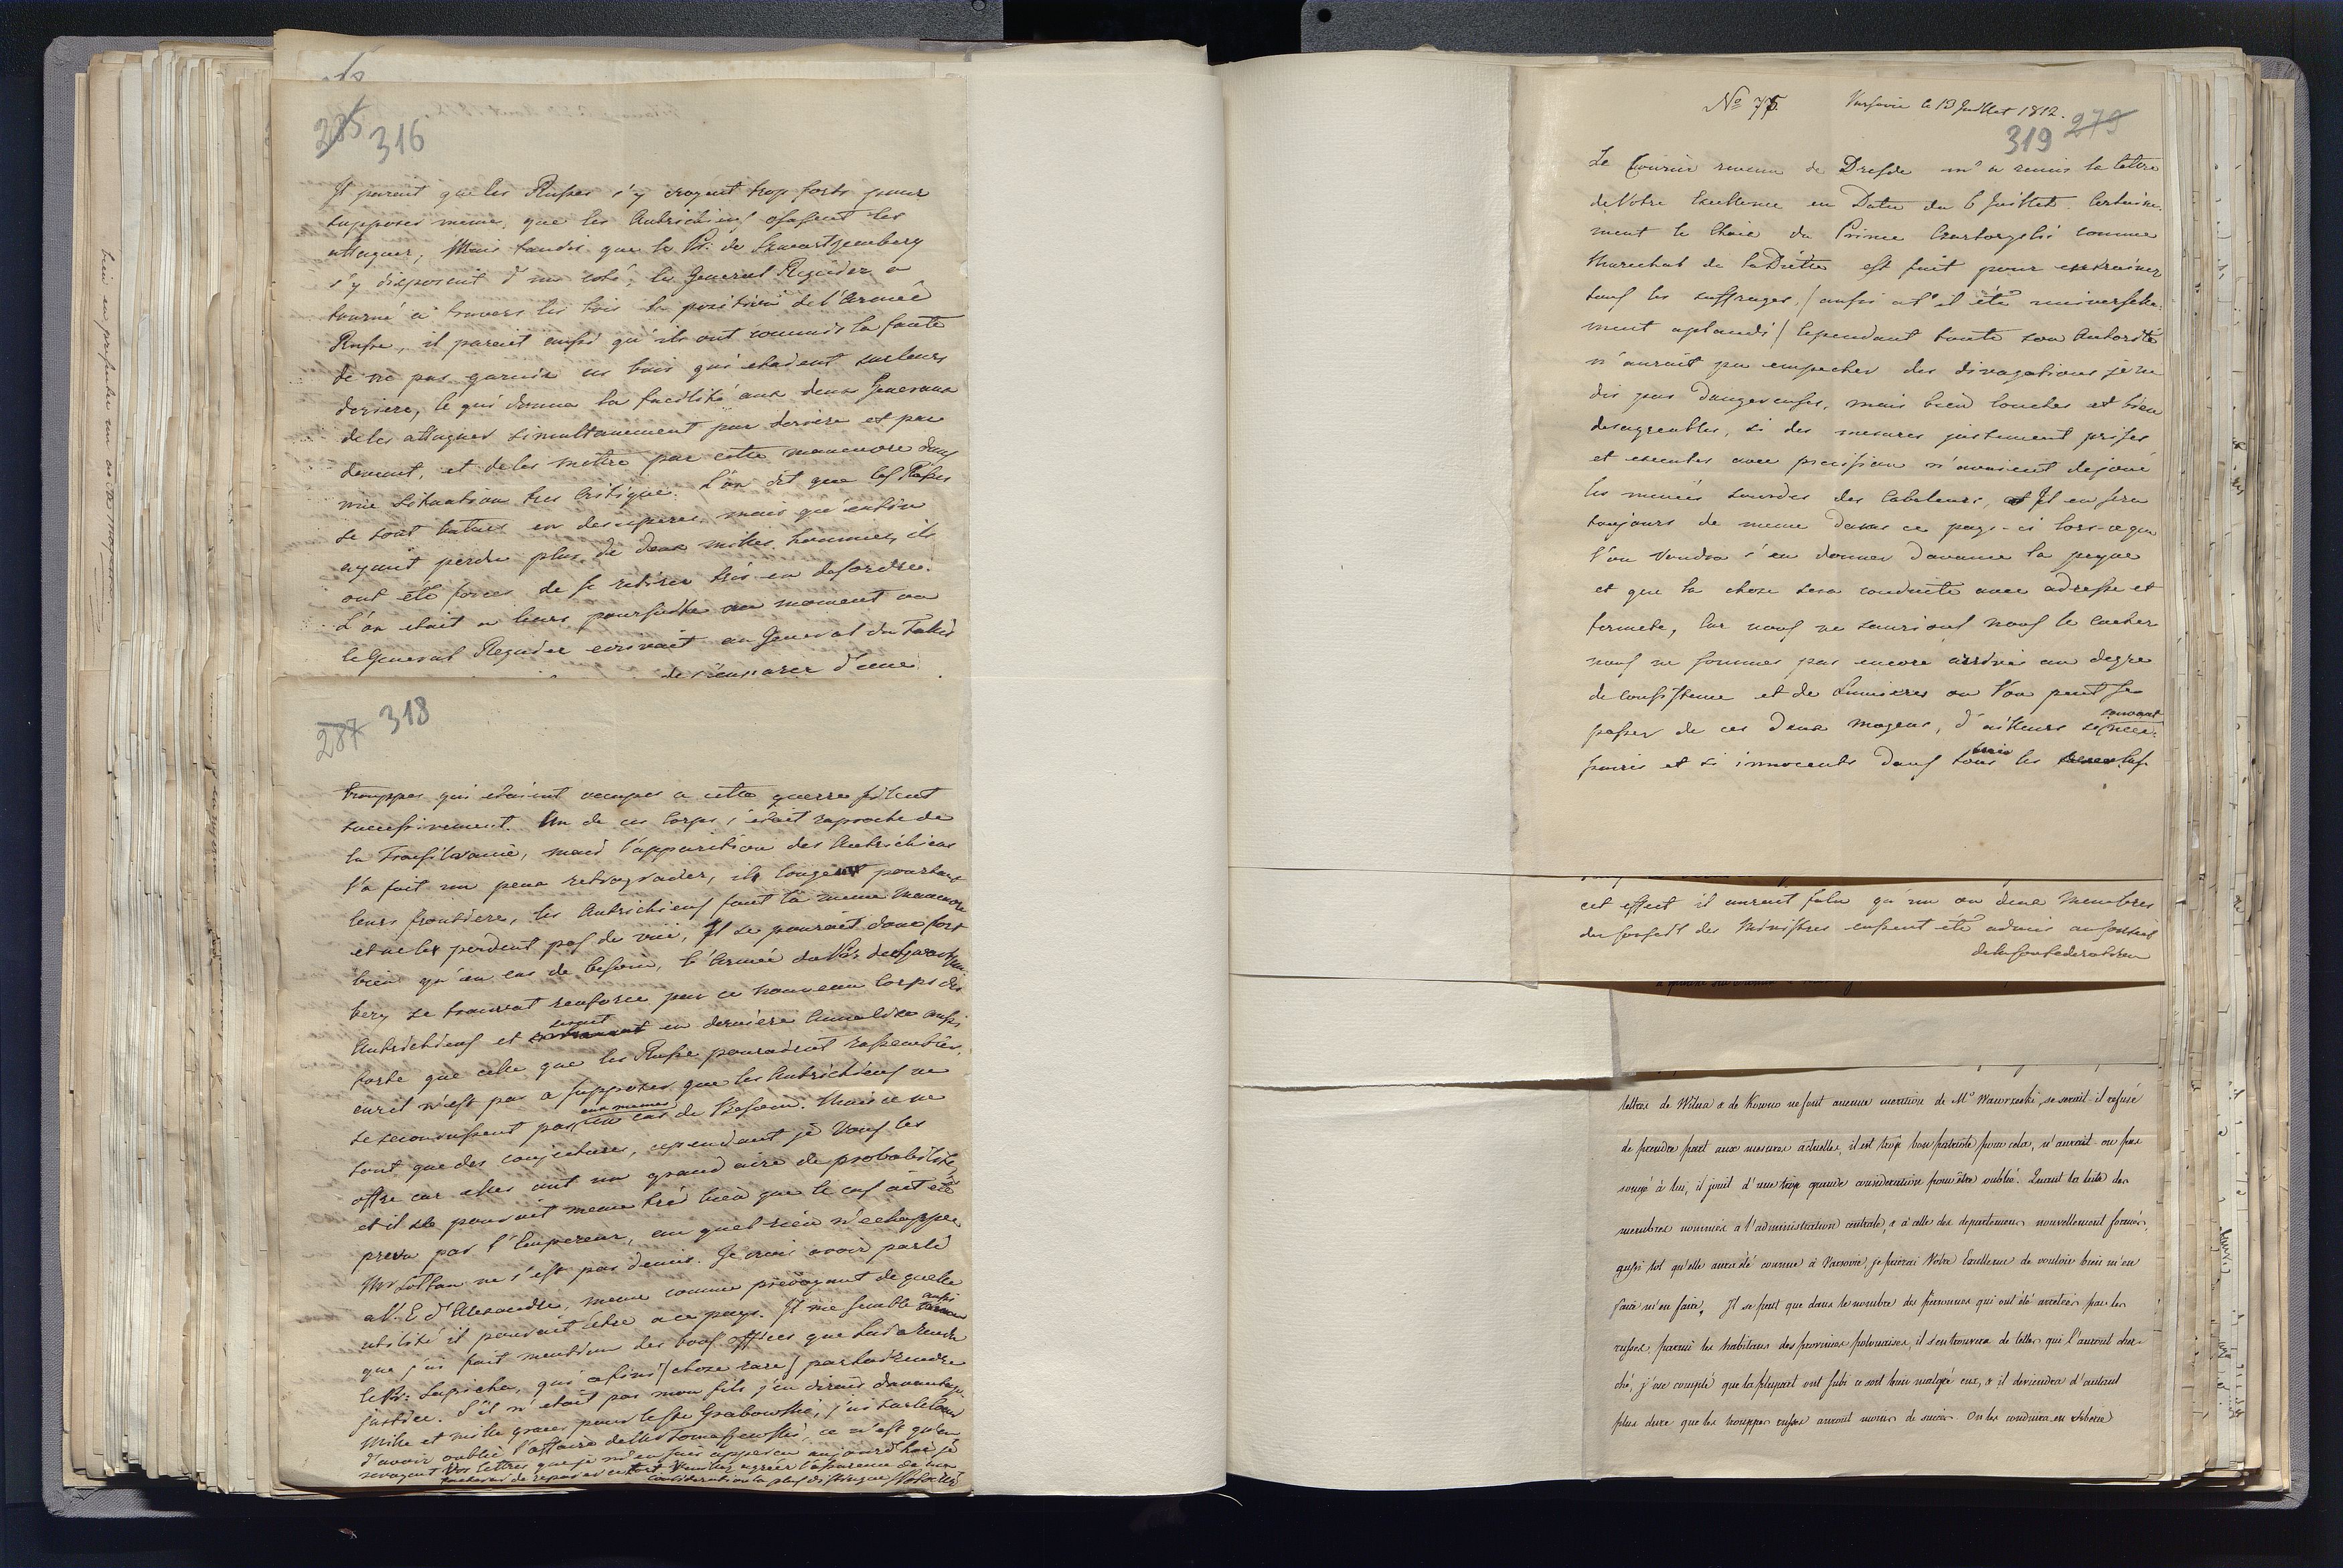 285 316
Il parait que les Russes s'y croyent trop forts pour
supposer meme, que les Autrichiens osassent les
attaquer, Mais tandis que le Pr: de Schwartzemberg
s'y disposent d'un coté, le General Regnier a
tourné a travers les bois la position de l'Armée
Russe, il parait aussi qu'ils ont commis la faute
de ne pas garnir ces bois qui etadent sur leurs
deriere, ce qui donna la facilité aux deux Generaux
de les attaquer simultanement par deriere et par
devant, et de les mettre par cette manoeuvre dans
une situation tres critique. L'on dit que les Russes
se sont battus en desesperes, mais qu'enfin
ayant perdu plus de deux milles hommes, ils
ont été forces de se retirer très en desordre.
L'on etait a leurs poursuite au moment ou
le General Regnier ecrivait au General du Taillis
de s'emparer d'une
287 318
trouppes qui etaient occupes a cette guerre filent
successivement. Un de ces Corps s'etait raproché de
la Transilvanie, mais l'apparition des Autrichiens
l'a fait un peux retrograder, ils longent pourtant
leurs frontiere, les Autrichiens font la meme manoevre
et ne les perdent pas de vue, Il se pourait donc fort
bien qu'en cas de besoin, l'Armée du Pr: de Schwartzem-
berg se trouvat renforcé par ce nouveau Corps des
Autrichiens et en derniere Annalise aussi
forte que celle que les Russe pouraient rassembler,
car il n'est pas a supposer que les Autrichiens ne
se secourussent pas eux memes en cas de Besoin. Mais ce ne
sont que des conjectures, cependant je vous les
offre car elles ont un grand aire de probabilité,
et il se pourait meme très bien que le cas ait été
prevu par l'Empereur, au quel rien n'echappe
Mr Soltan ne s'est pas demis. Je crois avoir parlé
a V. E. d'Alexandre, meme comme prevoyant de quelle
utilité il pouvait être a ce pays. Il me semble aussi
que j'ai fait mention des bons offices que lui a rendu
le Pr: Sapieha, qui a fini / chose rare / par lui rendre
justice. S'il n'etait pas mon fils j'en dirais davantage.
Mille et mille graces pour le Ste Grabowski,
d'avoir oublié l'affaire de Mr Tomaszewski, ce n'est qu'en
revoyant Vos lettres que je m'en suis apperçu aujourd'hui je
tacherai de reparer ce tort Veuillez agréer l'assurence de ma
consideration la plus distinguée
bien en presenter un acte
No 75 Varsovie le 13 Juillet 1812.
319 279
Le Courrier revenu de Dresde m'a remis la lettre
de Votre Excellence en Date du 6 Juillet. Certaine-
ment le Choix du Prince Czartoryski comme
Marechal de la Diette est fait pour entrainer
tous les suffrages, / aussi at'il été universelle-
ment aplaudi / Cependant toute son Autorité
n'aurait pu empecher des divagations je ne
dis pas Dangereuses, mais bien louches et bien
desagreables, si des mesures justement prises
et executés avec precision n'avaient dejoué
les menées sourdes des Cabaleurs, Il en sera
toujours de meme dans ce pays-ci lors-ce que
l'on voudra s'en donner d'avance la peyne
et que la chose sera conduite avec adresse et
fermeté, Car nous ne saurions nous le cacher
nous ne sommes pas encore arrivés au degre
de consistence et de Lumieres ou l'on peut se
passer de ces deux moyens, d'ailleurs si souvent nece-
ssaires et si innocents dans tous les
cet effect il aurait falu qu'un ou deux Membres
du Conseil des Ministres eussent été admis au Conseil
de la Confederation
lettres de Wilna & de Kowno ne font aucune mention de Mr Wawrzecki, se serait-il refusé
de prendre part aux mesures actuelles, il est trop bon patriote pour cela, n'aurait-on pas
songé à lui, il jouit d'une trop grande consideration pour être oublié. Quant la liste des
membres nommés à l'administration centrale, & à celle des departemens nouvellement formés,
aussi tot qu'elle aura été connue à Varsovie, je prierai Votre Excellence de vouloir bien m'en
faire m'en faire. Il se peut que dans le nombre des personnes qui ont été arretées par les
russes, parmi les habitans des provinces polonaises, il s'en trouvera de telles qui l'auront cher-
ché, j'ose compté que la plupart ont subi ce sort bien malgré eux, & il deviendra d'autant
plus dure que les trouppes russes auront moins de succès. On les conduira en Siberie